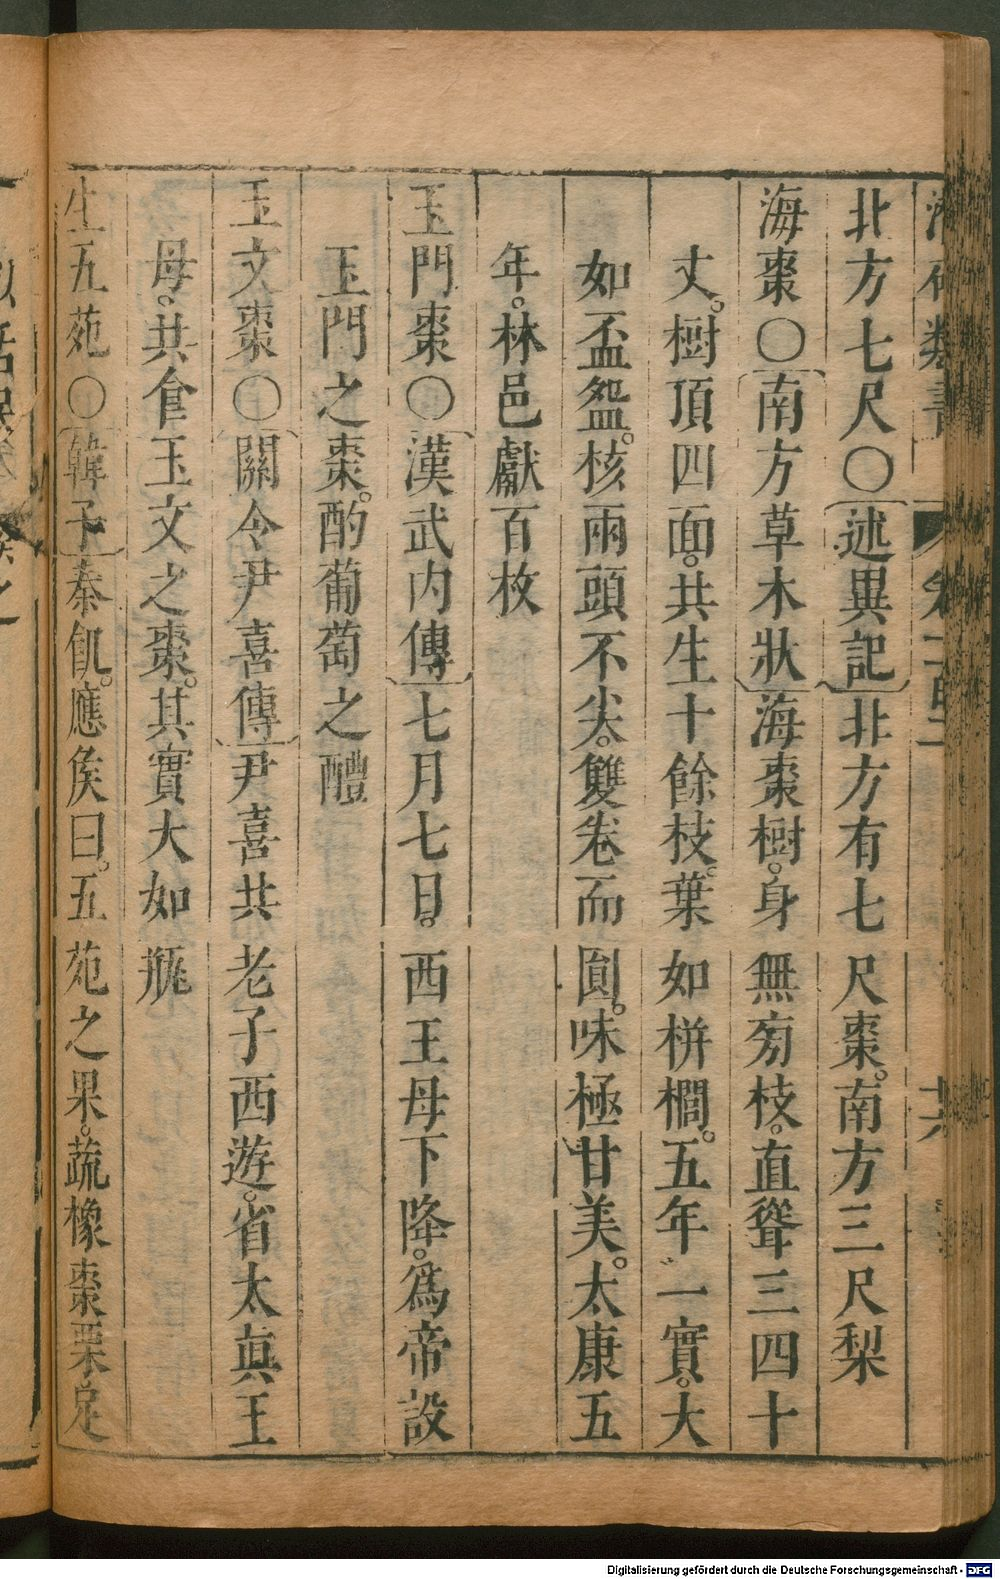 北方七尺〇述異記北方有七尺棗。南方三尺梨
海棗〇南方草木狀海棗樹。身無旁枝。直聳三四十
丈。樹頂四面。共生十餘枝。葉如栟櫚。五年一實。大
如盃盌。核兩頭不尖。雙卷而圓。味極甘美。太康五
年。林邑獻百枚
玉門棗〇漢武內傳七月七日。西王母下降。爲帝設
玉門之棗。酌葡萄之醴
玉文棗〇關令尹喜傳尹喜共老子西遊。省太眞王
母。共食玉文之棗。其實大如瓶
生五苑〇韓子秦飢。應侯曰。五苑之果。蔬橡棗栗。足
Digitalisierung gefördert durch die Deutsche Forschungsgemeinschaft - DFG